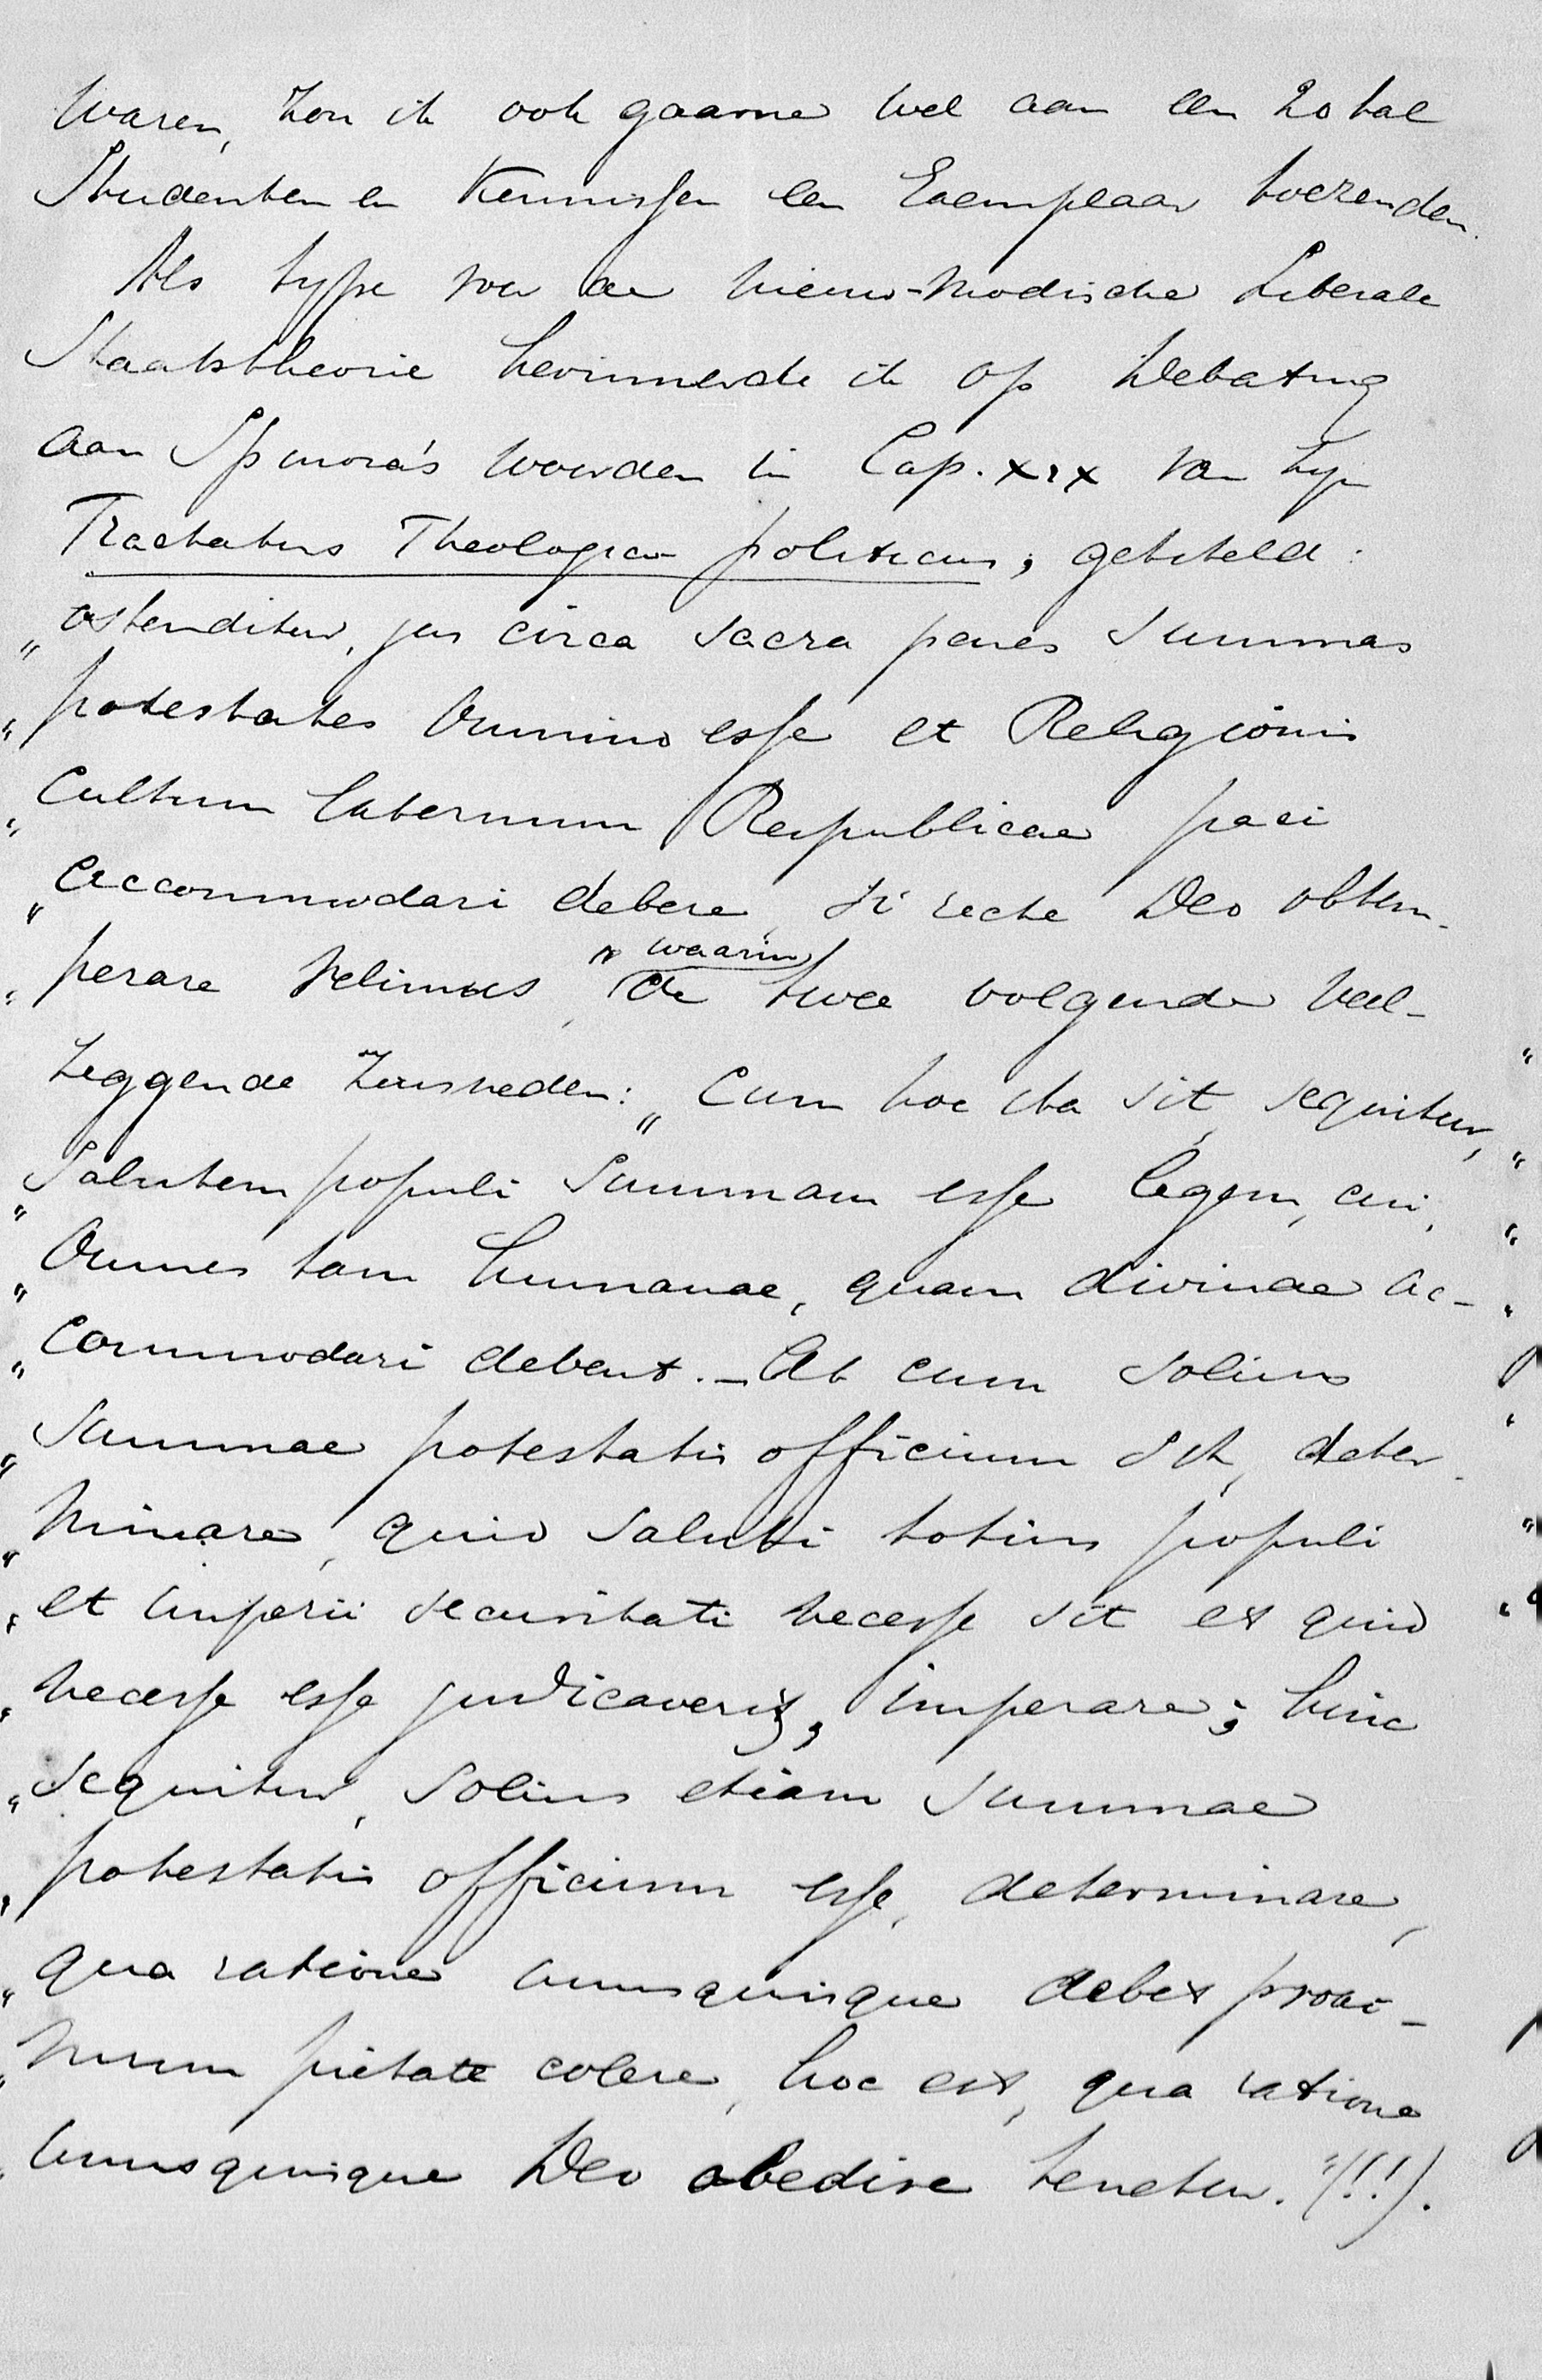 waren, zou ik ook gaarne wel aan een 20 tal
Studenten en Kennissen een Exemplaar toezenden.
Als type van de nieuw-modische Liberale
Staatstheorie herinnerde ik op Debating
aan Spinoza's woorden in Cap. XIX van zijn
Tractatus Theologico politicus; getiteld:
„ostenditur, jus circa sacra penes summas
„potestates omnino esse et Religionis
„Cultum externum Reipublicae paci
„accommodari debere, si recte Deo obtem-
„perare velimus," waarin de twee volgende veel-
zeggende zinsneden: „Cum hoc ita sit, sequitur,
„Salutem populi Summam esse legem, cui,
„Omnes tam humanae, quam divinae ac-
„commodari debent. – At cum solius
„Summae potestatis officium sit, deter-
„minare, quid saluti totius populi
„et imperii securitati necesse sit et quid
„necesse esse judicaverit, imperare; hinc
„sequitur, solius etiam summae
„potestatis officium esse, determinare,
„qua ratione unusquisque debet proxi-
„mum pietate colere, hoc est, qua ratione
„unusquisque Deo obedire tenetur."(!!).